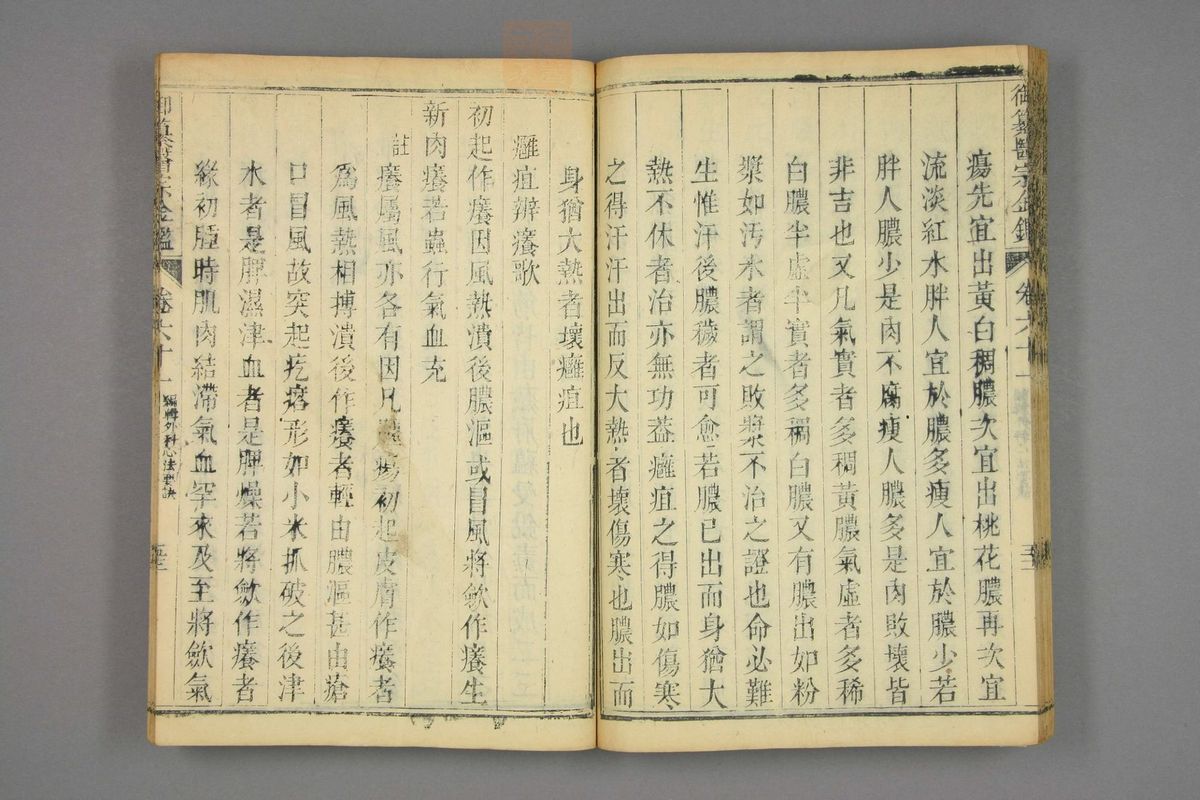 御纂醫宗金鑑 卷六十一
瘍先宜出黃白稠膿次宜出桃花膿再次宜
流淡紅水胖人宜於膿多瘦人宜於膿少若
胖人膿少是肉不腐瘦人膿多是肉敗壞皆
非吉也又凡氣實者多稠黃膿氣虛者多稀
白膿半虛半實者多稠白膿又有膿出如粉
漿如汚水者謂之敗漿不治之證也命必難
生惟汗後膿穢者可愈若膿已出而身猶大
熱不休者治亦無功葢癰疽之得膿如傷寒
之得汗汗出而反大熱者壞傷寒也膿出而
身猶大熱者壞癰疽也
癰疽辨癢歌
初起作癢因風熱潰後膿漚或冒風將歛作癢生
新肉癢若蟲行氣血充
註癢屬風亦各有因凡瘡瘍初起皮膚作癢者
為風熱相搏潰後作癢者輕由膿漚甚由瘡
口冒風故突起疙瘩形如小米抓破之後津
水者是脾濕津血者是脾燥若將歛作癢者
緣初腫時肌肉結滯氣血罕來及至將歛氣
御纂醫宗金鑑 卷六十一 編輯外科心法要訣